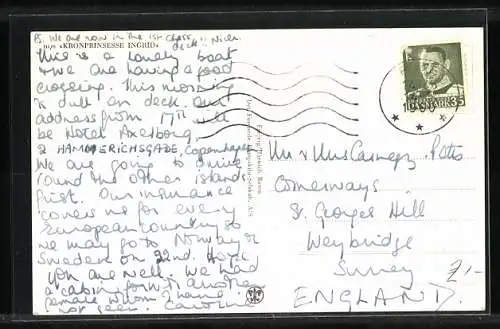 PS. We are now in the 1st class
deck!! Nice.
m/s «KRONPRINSESSE INGRID»
This is a lovely boat
& we are having a good
crossing. This morning
is dull on deck. Our
address from 17th will
be Hotel Axelborg
2 HAMMERICHSGADE, Copenhagen
We are going to drive
round the other islands
first. Our insurance
covers us for every
European country so
we may go to Norway or
Sweden on 22nd. Hope
you are well. We had
a cabin for 4, another
female whom I have
not seen. Caroline
DANMARK 35
Mr & Mrs Carnegy Potts
Comerways
St. Georges Hill
Weybridge
Surrey
ENGLAND.
£1-